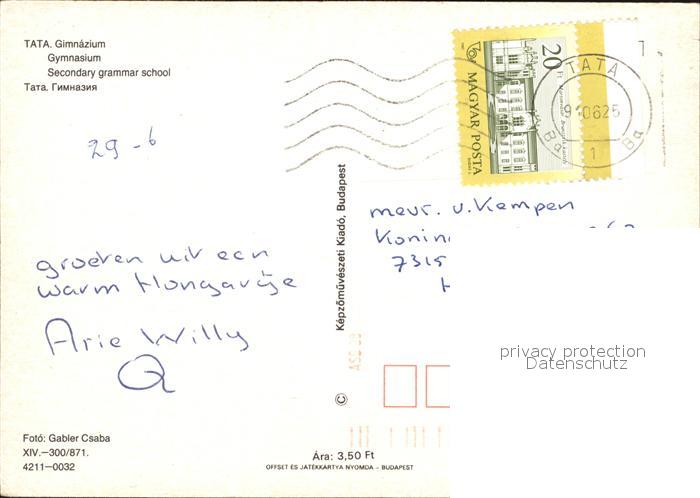 TATA. Gimnázium
Gymnasium
Secondary grammar school
Тата. Гимназия
29-6
groeten uit een
warm Hongarije
Arie Willy
Fotó: Gabler Csaba
XIV.—300/871.
4211—0032
Képzőművészeti Kiadó, Budapest
©
Ára: 3,50 Ft
OFFSET ÉS JÁTÉKKÁRTYA NYOMDA – BUDAPEST
20 Ft
MAGYAR POSTA
TATA
1
mevr. v. Kempen
7315
privacy protection
Datenschutz